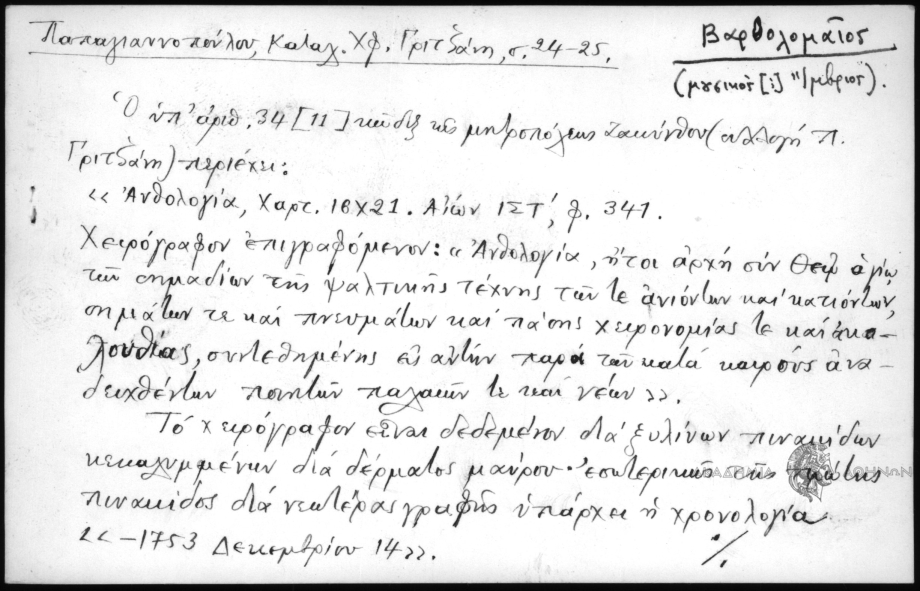 Παπαγιαννοπούλου, Καταλ. Χφ. Γριτσάνη, σ. 24-25.
Βαρθολομαῖος
(μουσικὸς [;] Ἴμβριος).
Ὁ ὑπ' ἀριθ. 34 [11] κῶδιξ τῆς μητροπόλεως Ζακύνθου (συλλογή Π.
Γριτσάνη) περιέχει:
«Ἀνθολογία, Χαρτ. 16Χ21. Αἰών ΙΣΤ΄, φ. 341.
Χειρόγραφον ἐπιγραφόμενον: «Ἀνθολογία, ἤτοι ἀρχή σύν Θεῷ ἁγίῳ
τῶν σημαδίων τῆς ψαλτικῆς τέχνης τῶν τε ἀνιόντων καί κατιόντων,
σημάτων τε καί πνευμάτων καί πάσης χειρονομίας τε καί ἀκο-
λουθίας, συντεθημένης εἰς αὐτήν παρά τῶν κατά καιρούς ἀνα-
δειχθέντων ποιητῶν παλαιῶν τε καί νέων».
Τό χειρόγραφον εἶναι δεδεμένον διά ξυλίνων πινακίδων
κεκαλυμμένων διά δέρματος μαύρου· ἐσωτερικῶς τῆς πρώτης
πινακίδος διά νεωτέρας γραφῆς ὑπάρχει ἡ χρονολογία
«-1753 Δεκεμβρίου 14».
./.
ΑΚΑΔΗΜΙΑ ΑΘΗΝΩΝ